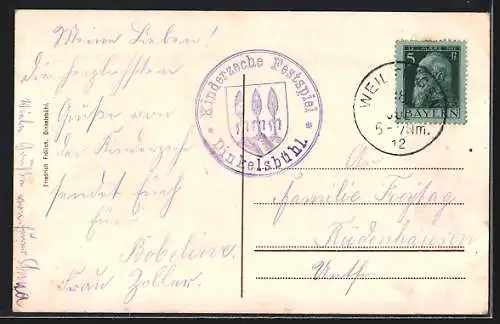 Meine Lieben!
Die herzlichsten
Grüße von
der Kinderzeche
sendet Euch
Eure
Bobeline.
Frau Zoller.
Viele Grüße
Anna
Friedrich Fröhlich, Dinkelsbühl.
* Kinderzeche Festspiel *
Dinkelsbühl.
WEIL
6-7Nm.
12
5 5
BAYERN
An
Familie Freitag
Rüdenhausen